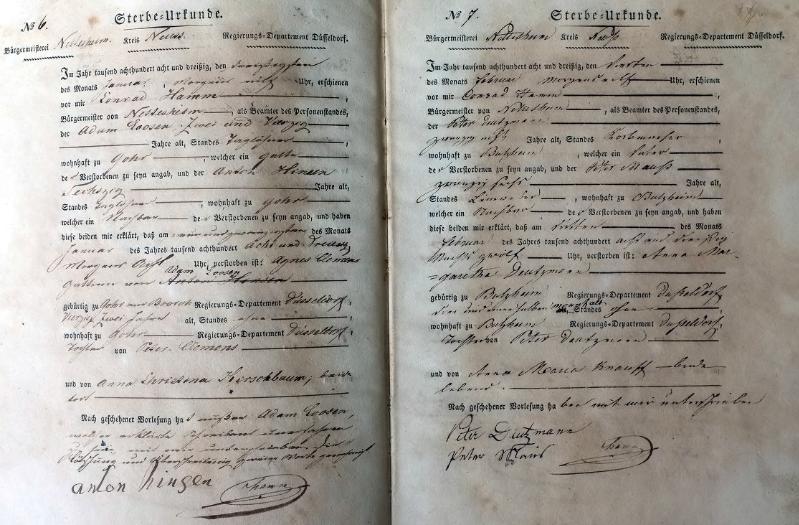 No 6. Sterbe-Urkunde.
Bürgermeisterei Nettesheim. Kreis Neuss. Regierungs-Departement Düsseldorf.
Im Jahr tausend achthundert acht und dreißig, den
des Monats Januar, Morgens Uhr, erschienen
vor mir Conrad Hamm,
Bürgermeister von Nettesheim, als Beamter des Personenstandes,
der Adam Loosen zwei und Vierzig
Jahre alt, Standes Taglöhner
wohnhaft zu Gohr, welcher ein Gatte
der Verstorbenen zu seyn angab, und der Anton Hinsen
Sechszig Jahre alt,
Standes Taglöhner, wohnhaft zu Gohr
welcher ein Nachbar der Verstorbenen zu seyn angab, und haben
diese beiden mir erklärt, daß am des Monats
Januar des Jahres tausend achthundert Acht und Dreissig
Morgens Uhr, verstorben ist: Agnes Clemens
Adam Loosen
Gattinn von
gebürtig zu Gohr Regierungs-Departement Düsseldorf,
Vierzig zwei Jahre alt, Standes ohne
wohnhaft zu Gohr Regierungs-Departement Düsseldorf,
Tochter von Peter Clemens
und von Anna Christina Kerschbaum,
Nach geschehener Vorlesung ha Adam Loosen,
Anton hinsen Hamm
No 7. Sterbe-Urkunde.
Bürgermeisterei Nettesheim Kreis Neuß Regierungs-Departement Düsseldorf.
Im Jahr tausend achthundert acht und dreißig, den Vierten
des Monats Februar Morgens elf Uhr, erschienen
vor mir Conrad Hamm,
Bürgermeister von Nettesheim, als Beamter des Personenstandes,
der Peter Deutzmann
zwanzig acht Jahre alt, Standes Korbmacher
wohnhaft zu Butzheim, welcher ein Vater
der Verstorbenen zu seyn angab, und der Peter Mauß
zwanzig sechs Jahre alt,
Standes, wohnhaft zu Butzheim
welcher ein Nachbar der Verstorbenen zu seyn angab, und haben
diese beiden mir erklärt, daß am dritten des Monats
Februar des Jahres tausend achthundert acht und dreißig
Nachts zwölf Uhr, verstorben ist: Anna Mar-
garetha Deutzmann
gebürtig zu Butzheim Regierungs-Departement Düsseldorf
alt, Standes ohne
wohnhaft zu Butzheim Regierungs-Departement Düsseldorf,
Tochter von Peter Deutzmann
und von Anna Maria Knauff beide
lebend
Nach geschehener Vorlesung haben mit mir unterschrieben
Peter Deutzmann
Peter Maus Hamm